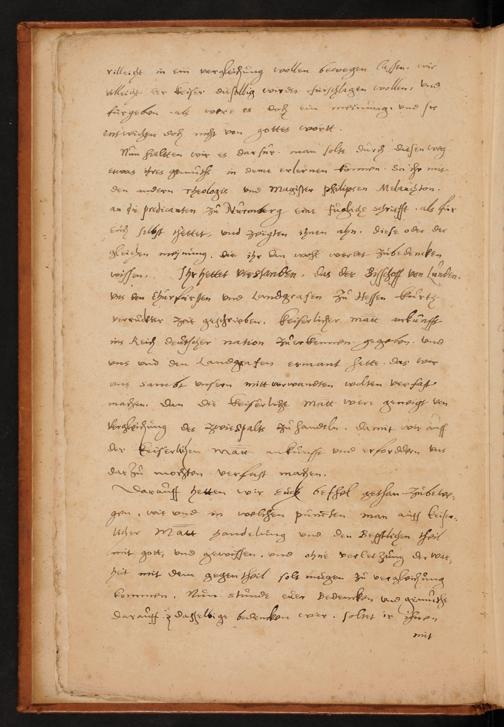 villeicht in ein vergleichung wollen bewegen lassen. wie
villeicht der keiser dieselbig werde fürschlagen wollen, und
fürgeben als were es doch ein meinung, und sie
entwichen doch nicht von gottes wort.
Nun hieltten wir es darfür. man solte durch diesen weg
etwas ires gemüths in deme erlernen können. So ihr mit
den andern Theologie und Magister philipsen Melanchton.
an die predicanten zu Nürmberg eine schrifft. als für
euch selbst thettet, und zeigten ihnen ahn. diese oder der
gleichen meinung. die ihr den wohl werdet zubedencken
wissen. Ihr hettet verstanden, das der Bischoff von Lunden.
uns dem Churfursten und Landgrafen zu Hessen kurtz
verruckter zeit geschrieben. keiserlicher Matt ankunfft
ins Reich deutscher nation zuerkennen gegeben. und
uns und den Landgrafen ermant hette. das wir
uns sambt unsern mittverwandten wolten verfast
machen. dan die keiserliche Matt were geneigt von
vergleichung der zwiespalt zuhandeln. damit wir auff
der keiserlichen Matt ankunfft und erfordern uns
darzu mochten verfast machen.
Darauff hetten wir euch befhel gethan zubewe-
gen, wie und in welchen puncten man auff keiser-
licher Matt handelung und den Bepstlichen theil
mit gott, und gewissen. und ohne verletzung der war-
heit mit dem gegentheil solt mögen zu vergleichung
kommen. Nun stunde euer bedencken und gemuthe
darauff das bedencken wer. soltet ir ihnen
mit